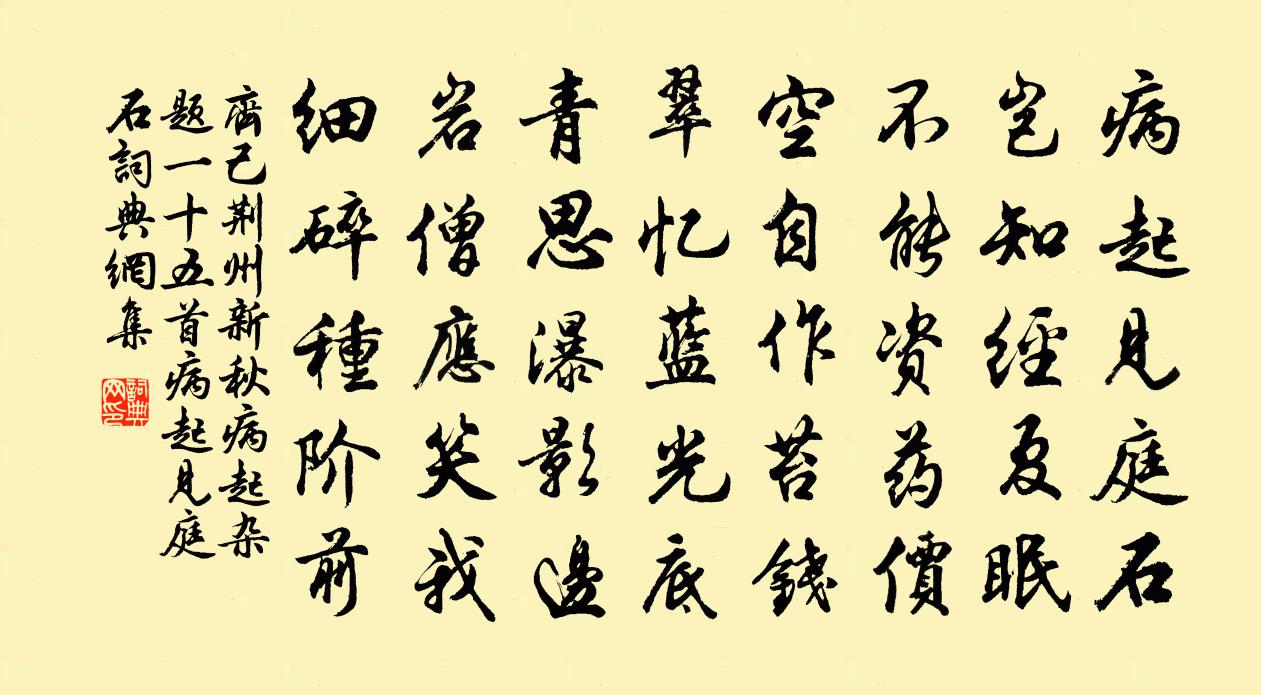 病起見庭石
豈知經夏眠
不能資药價
空自作苔錢
翠忆藍光底
青思瀑影邊
岩僧應笑我
细碎種阶前
齊己荆州新秋病起杂
题一十五首病起見庭
石詞典網集
詞典
网印